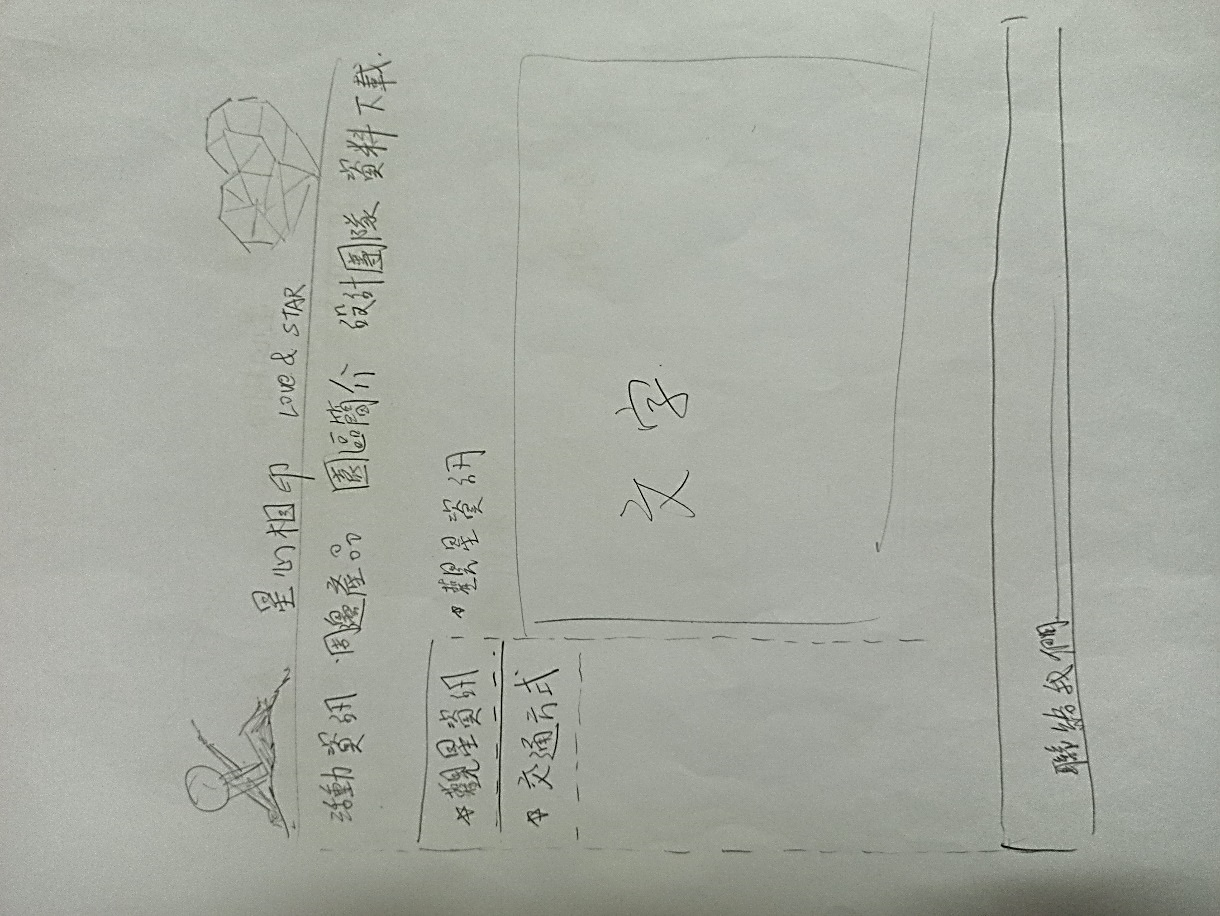 星心相印 LOVE & STAR
活動資訊 周邊產品 園區簡介 設計團隊 資料下載
觀星資訊
交通方式
觀星資訊
文字
聯絡我們